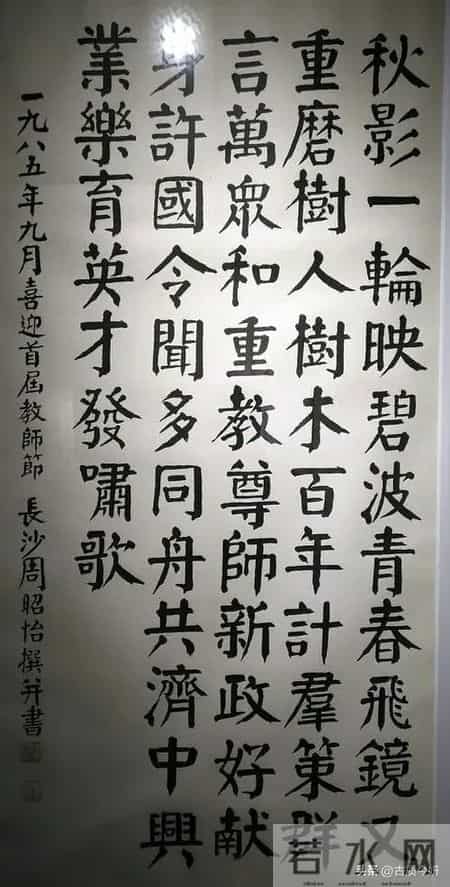 秋影一輪映碧波青春飛鏡又
重磨樹人樹木百年計羣策群
言萬眾和重教尊師新政好献
身許國令聞多同舟共濟中興
業樂育英才發嘯歌
一九八五年九月喜迎首屆教師節 長沙周昭怡撰并書
若水网